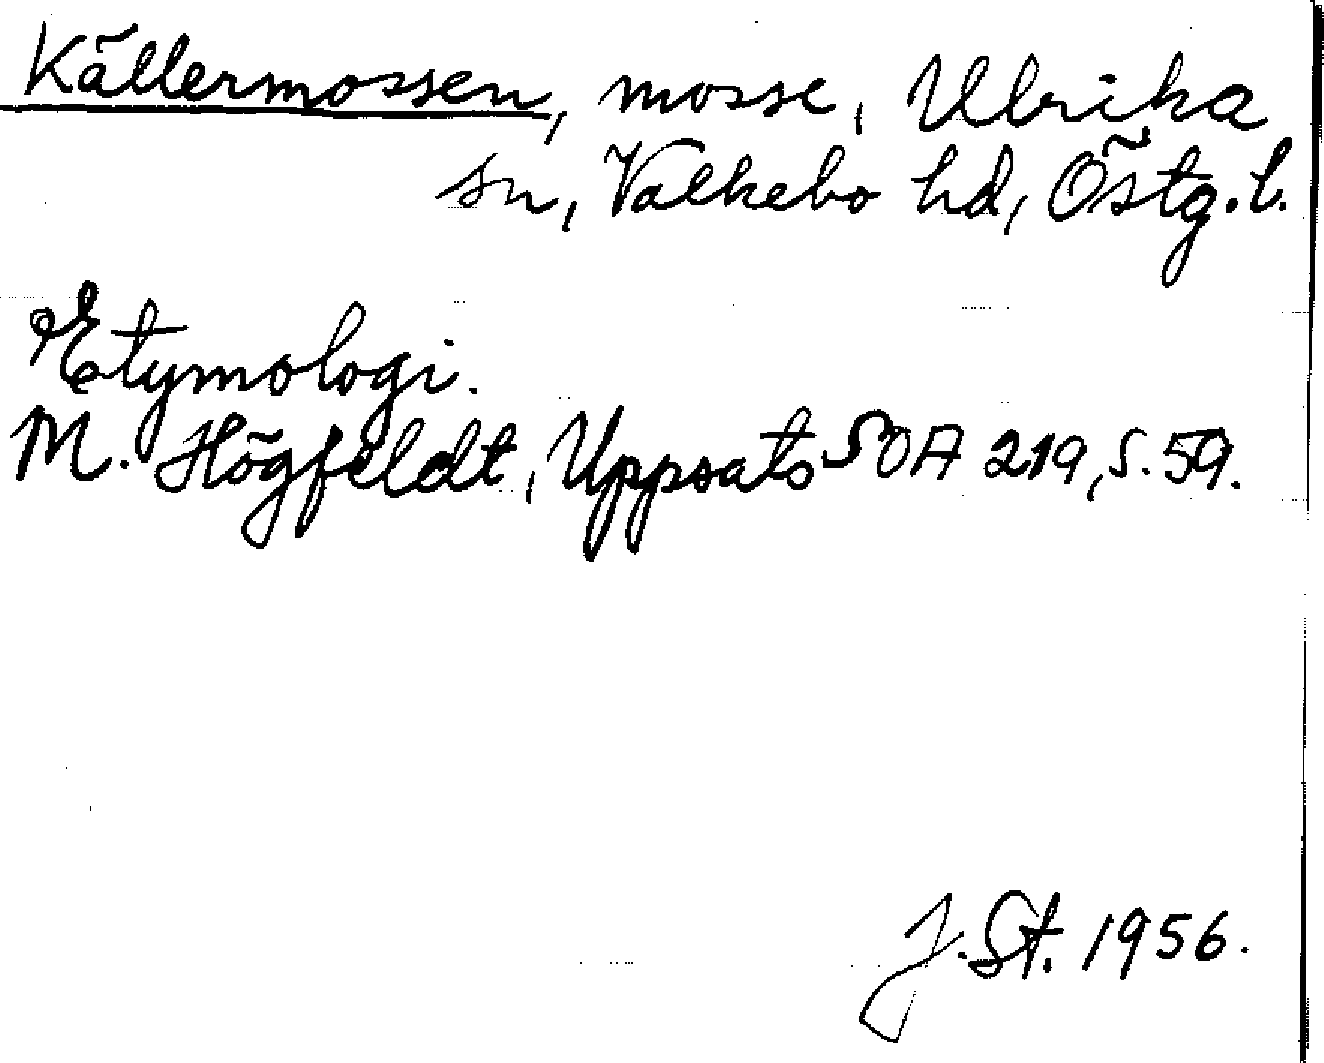 Källermossen, mosse, Ulrika
sn, Valkebo hd, Östg. l.
Etymologi.
M. Högfeldt, Uppsats SOA 219, s. 59.
J. St. 1956.